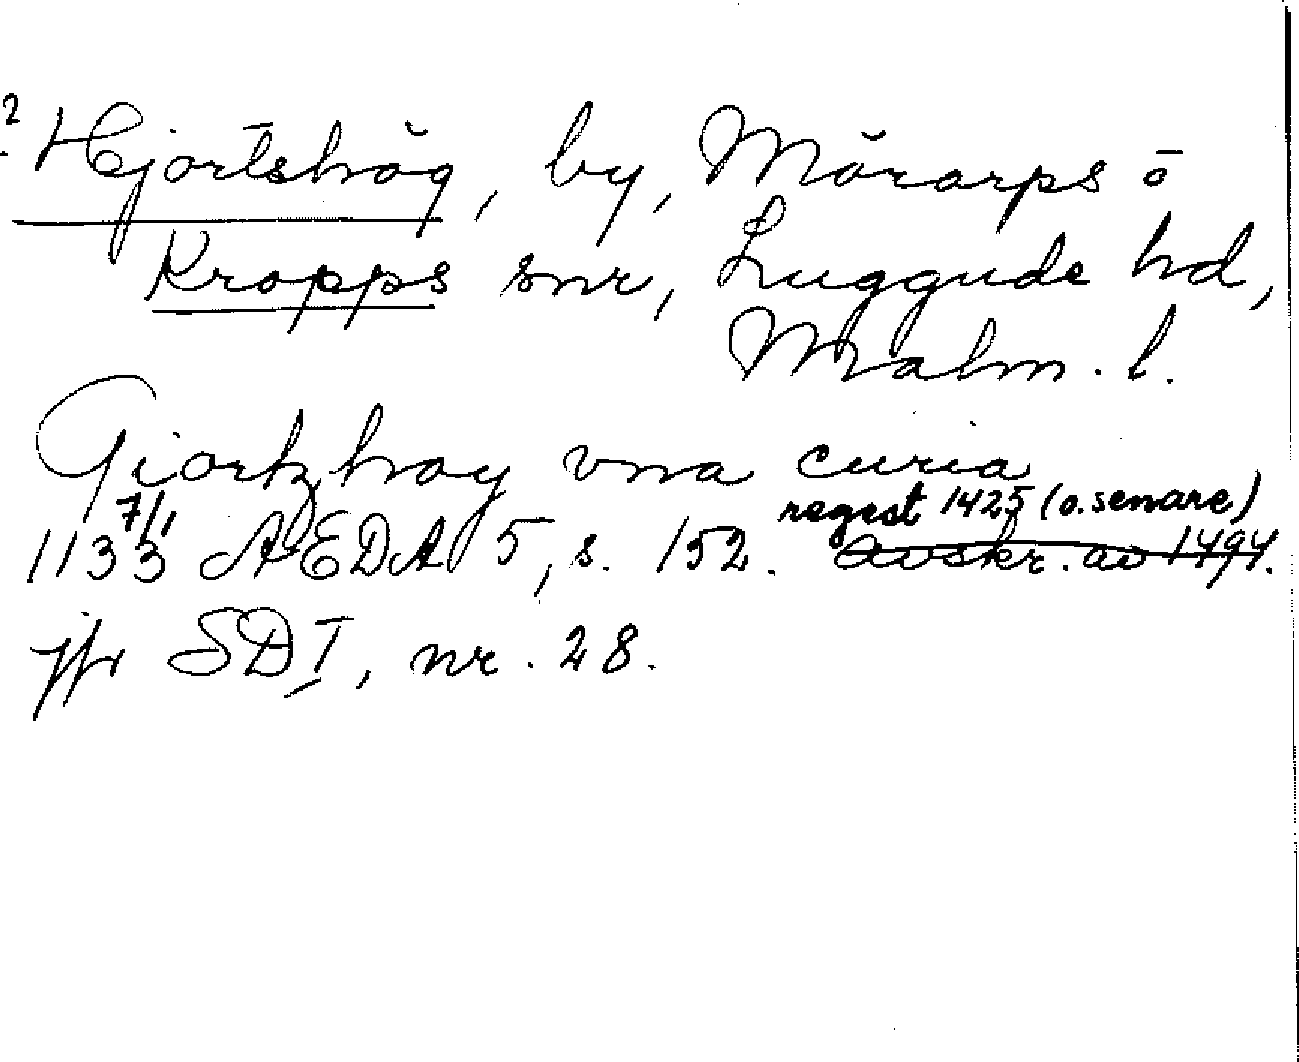 2
Hjortshög, by, Mörarps o
Kropps snr, Luggude hd,
Malm. l.
Giortzhoy vna curia
regest 1425 (o. senare)
7/1
1133 AEDA 5, s. 152. avskr. av 1494.
jfr SD I, nr. 28.